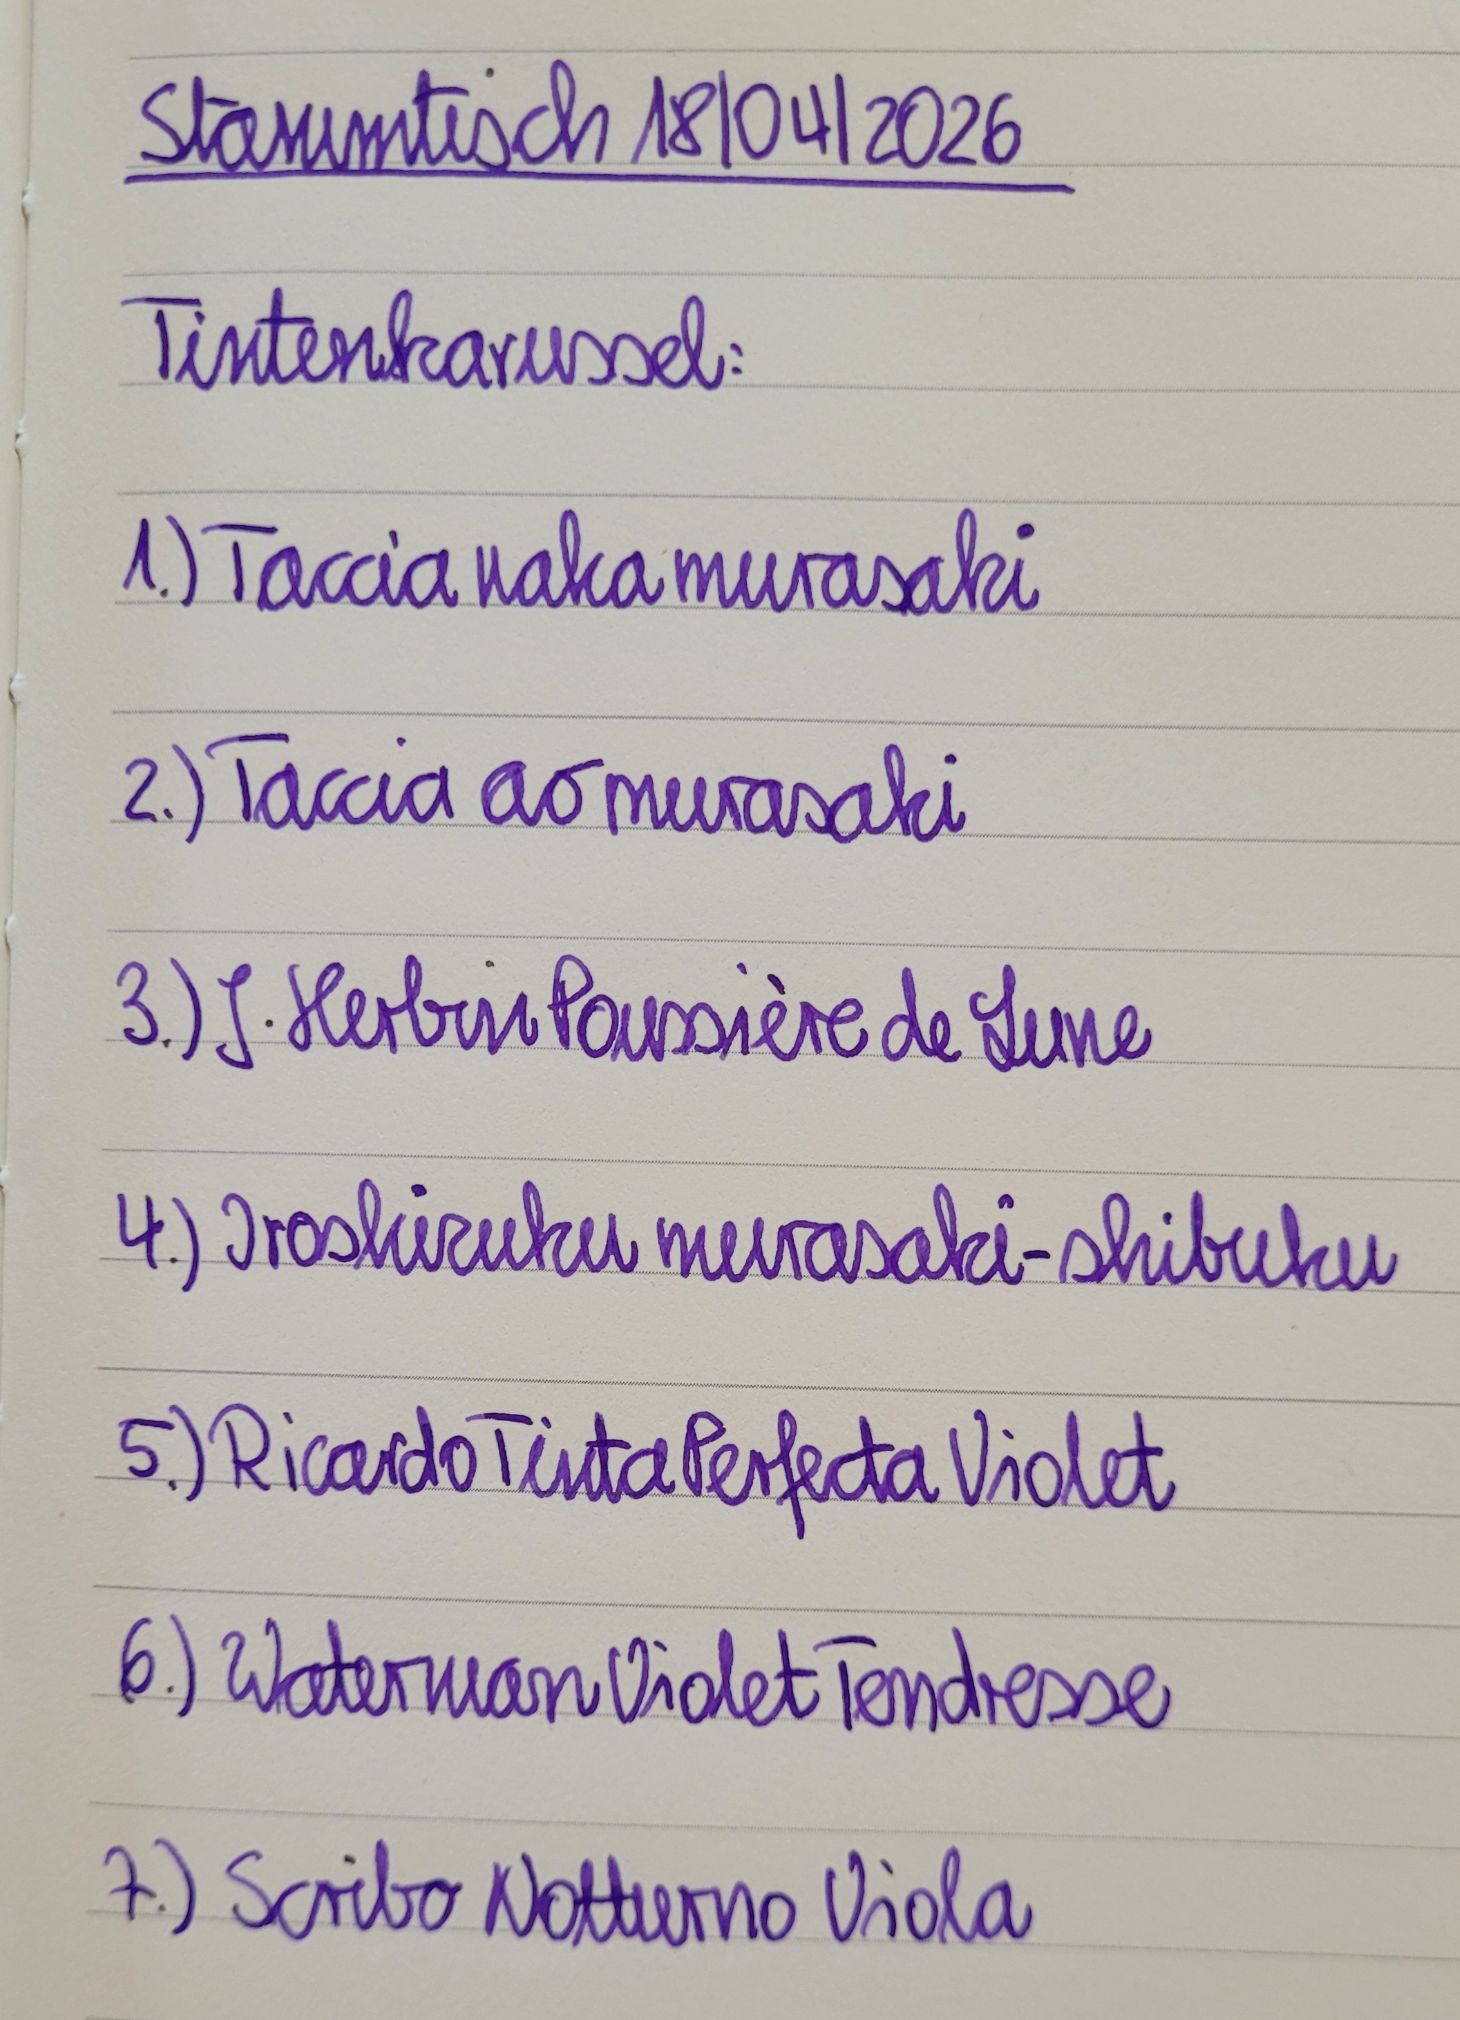 Stammtisch 18/04/2026
Tintenkarussel:
1.) Taccia naka murasaki
2.) Taccia ao murasaki
3.) J. Herbin Poussière de Lune
4.) Iroshizuku murasaki-shibuku
5.) Ricardo Tinta Perfecta Violet
6.) Waterman Violet Tendresse
7.) Scribo Notturno Viola